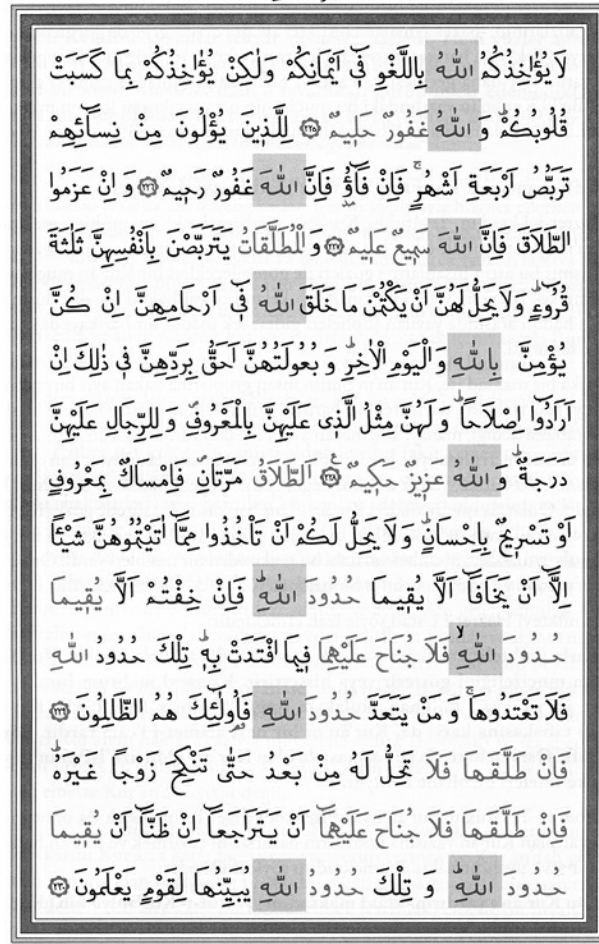 لَا يُؤَاخِذُكُمُ اللّٰهُ بِاللَّغْوِ فٖٓي اَيْمَانِكُمْ وَلٰكِنْ يُؤَاخِذُكُمْ بِمَا كَسَبَتْ
قُلُوبُكُمْؕ وَ اللّٰهُ غَفُورٌ حَلٖيمٌ ﴿٢٢٥﴾ لِلَّذٖينَ يُؤْلُونَ مِنْ نِسَٓائِهِمْ
تَرَبُّصُ اَرْبَعَةِ اَشْهُرٍۚ فَاِنْ فَٓاؤُ۫ فَاِنَّ اللّٰهَ غَفُورٌ رَحٖيمٌ ﴿٢٢٦﴾ وَ اِنْ عَزَمُوا
الطَّلَاقَ فَاِنَّ اللّٰهَ سَمٖيعٌ عَلٖيمٌ ﴿٢٢٧﴾ وَ الْمُطَلَّقَاتُ يَتَرَبَّصْنَ بِاَنْفُسِهِنَّ ثَلٰثَةَ
قُرُٓوءٍؕ وَلَا يَحِلُّ لَهُنَّ اَنْ يَكْتُمْنَ مَا خَلَقَ اللّٰهُ فٖٓي اَرْحَامِهِنَّ اِنْ كُنَّ
يُؤْمِنَّ بِاللّٰهِ وَ الْيَوْمِ الْاٰخِرِؕ وَ بُعُولَتُهُنَّ اَحَقُّ بِرَدِّهِنَّ فٖي ذٰلِكَ اِنْ
اَرَادُٓوا اِصْلَاحاًؕ وَ لَهُنَّ مِثْلُ الَّذٖي عَلَيْهِنَّ بِالْمَعْرُوفِ وَ لِلرِّجَالِ عَلَيْهِنَّ
دَرَجَةٌؕ وَ اللّٰهُ عَزٖيزٌ حَكٖيمٌ ﴿٢٢٨﴾ اَلطَّلَاقُ مَرَّتَانِࣕ فَاِمْسَاكٌ بِمَعْرُوفٍ
اَوْ تَسْرٖيحٌ بِاِحْسَانٍؕ وَ لَا يَحِلُّ لَكُمْ اَنْ تَأْخُذُوا مِمَّٓا اٰتَيْتُمُوهُنَّ شَيْـٔاً
اِلَّٓا اَنْ يَخَافَٓا اَلَّا يُقٖيمَا حُدُودَ اللّٰهِؕ فَاِنْ خِفْتُمْ اَلَّا يُقٖيمَا
حُدُودَ اللّٰهِۙ فَلَا جُنَاحَ عَلَيْهِمَا فٖيمَا افْتَدَتْ بِهٖؕ تِلْكَ حُدُودُ اللّٰهِ
فَلَا تَعْتَدُوهَاۚ وَ مَنْ يَتَعَدَّ حُدُودَ اللّٰهِ فَاُو۬لٰٓئِكَ هُمُ الظَّالِمُونَ ﴿٢٢٩﴾
فَاِنْ طَلَّقَهَا فَلَا تَحِلُّ لَهُ مِنْ بَعْدُ حَتّٰى تَنْكِحَ زَوْجاً غَيْرَهُؕ
فَاِنْ طَلَّقَهَا فَلَا جُنَاحَ عَلَيْهِمَٓا اَنْ يَتَرَاجَعَٓا اِنْ ظَنَّٓا اَنْ يُقٖيمَا
حُدُودَ اللّٰهِؕ وَ تِلْكَ حُدُودُ اللّٰهِ يُبَيِّنُهَا لِقَوْمٍ يَعْلَمُونَ ﴿٢٣٠﴾